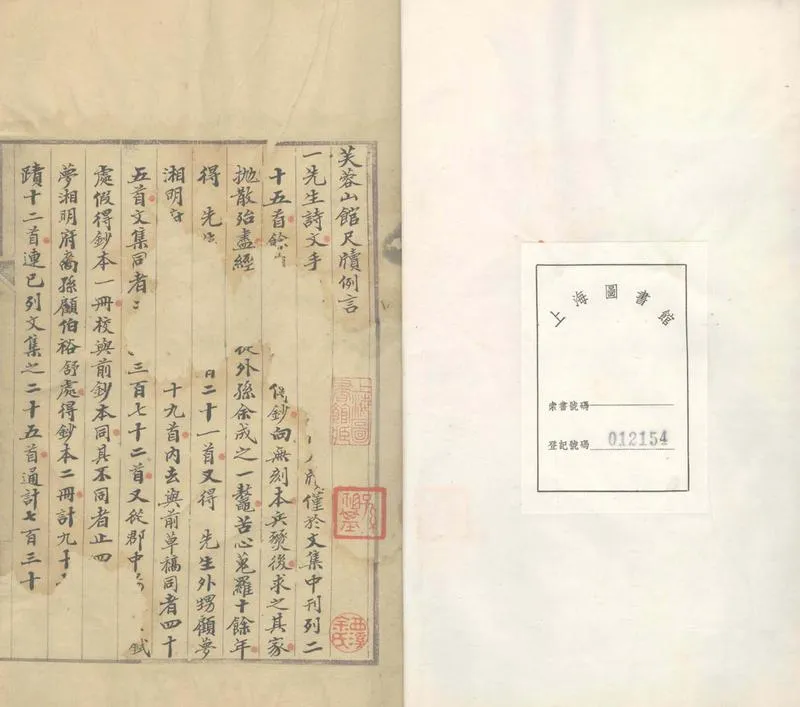 芙蓉山館尺牘例言
一先生詩文手 僅於文集中刊列二
十五首餘 鈔向無刻本兵燹後求之其家
拋散殆盡經 外孫余成之一鼇苦心蒐羅十餘年
得 先 二十一首又得 先生外甥顧夢
湘明 十九首內去與前草稿同者四十
五首文集同者 三百七十二首又從郡中 弒
處假得鈔本一冊校與前鈔本同其不同者止四
夢湘明府喬孫顧伯裕舒處得鈔本二冊計九十
蹟十二首連已列文集之二十五首通計七百三十
上海圖書館藏
西溪余氏
上海圖書館
索書號碼
登記號碼 012154